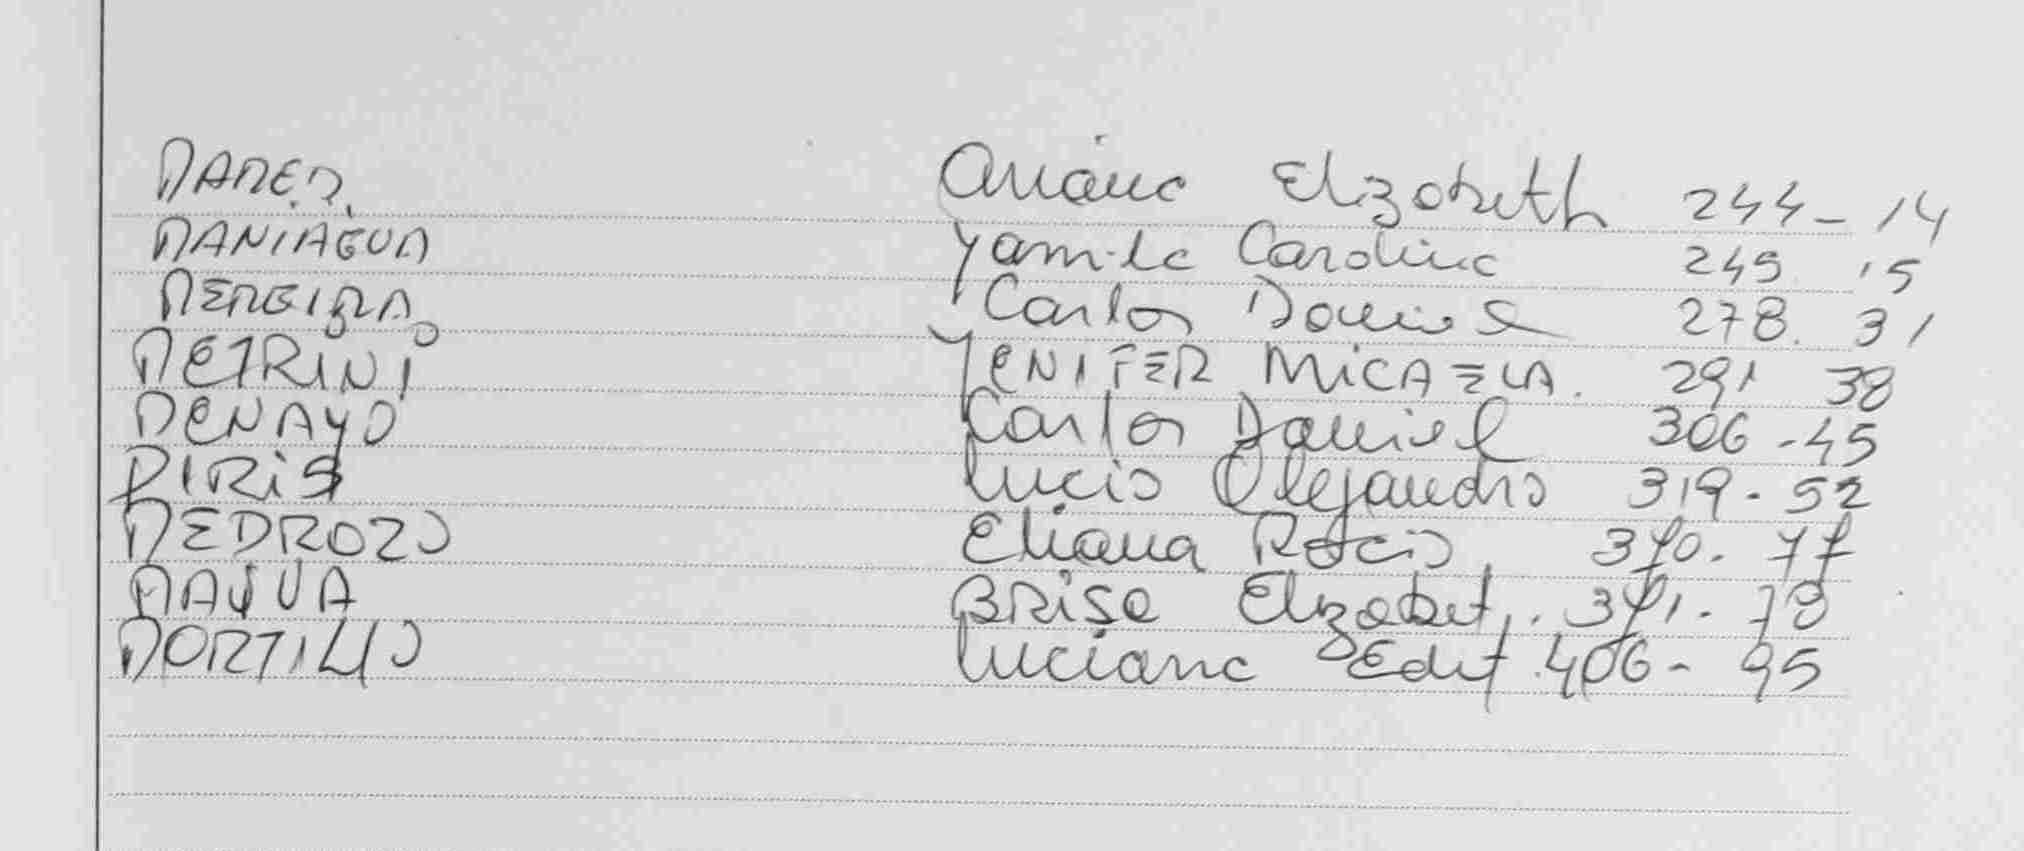 PARED. Ariana Elizabeth 244-14
PANIAGUA Yamila Carolina 245 15
PEREIRA Carlos Daniel 278. 31
PETRINI YENIFER MICAELA. 291 38
PENAYO Carlos Daniel 306-45
PIRIS Lucio Alejandro 319-52
PEDROZO Eliana Rocio 370-77
Brisa Elizabet. 371-78
PORTILLO Luciana Edit 406-95